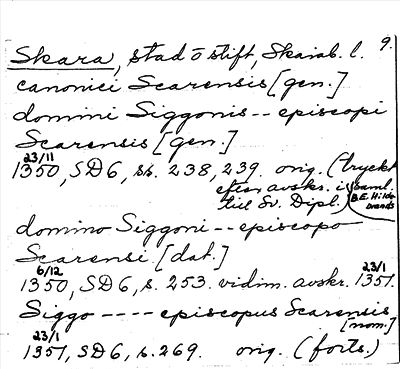 9.
Skara, stad o stift, Skarab. l.
canonici Scarensis [gen.]
domini Siggonis -- episcopi
Scarensis [gen.]
23/11
1350, SD6, ss. 238, 239. orig. (tryckt
efter avskr. i Saml.
till Sv. Dipl.) B.E. Hilde
brands
domino Siggoni -- episcopo
Scarensi [dat.]
6/12 23/1
1350, SD6, s. 253. vidim. avskr. 1351.
Siggo ---- episcopus Scarensis
[nom.]
23/1
1351, SD6, s. 269. orig. (forts.)